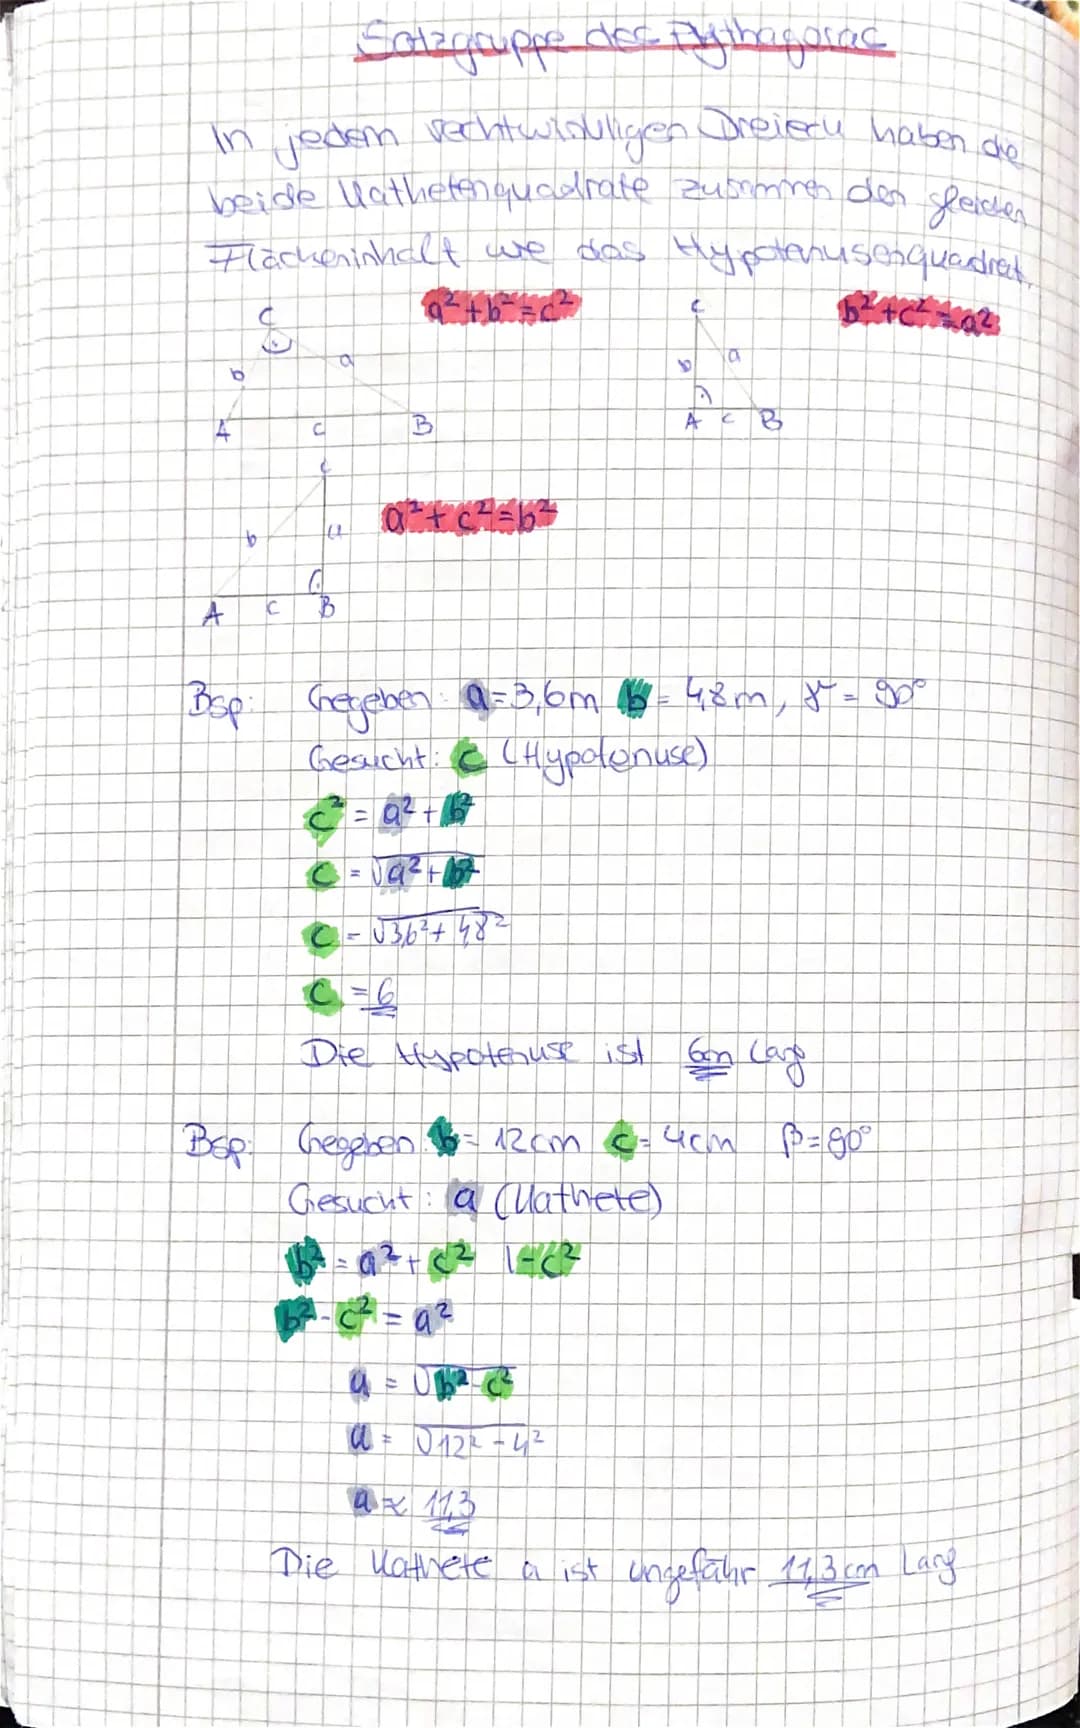 Satzgruppe des Pythagoras
In jedem rechtwinkligen Dreieck haben die
beide Kathetenquadrate zusammen den gleichen
Flächeninhalt wie das Hypotenusenquadrat.
a²+b²=c²
b²+c²=a²
C
b a
A c B
C
b a
A c B
C
a²+c²=b²
b a
A c B
Bsp: Gegeben: a=3,6m b=4,8m, γ=90°
Gesucht: c (Hypotenuse)
c² = a²+b²
c = √a²+b²
c = √3,6²+4,8²
c = 6
Die Hypotenuse ist 6m lang
Bsp: Gegeben: b= 12cm c= 4cm β=90°
Gesucht: a (Kathete)
b² = a²+c² |-c²
b²-c² = a²
a = √b²-c²
a = √12²-4²
a ≈ 11,3
Die Kathete a ist ungefähr 11,3cm lang